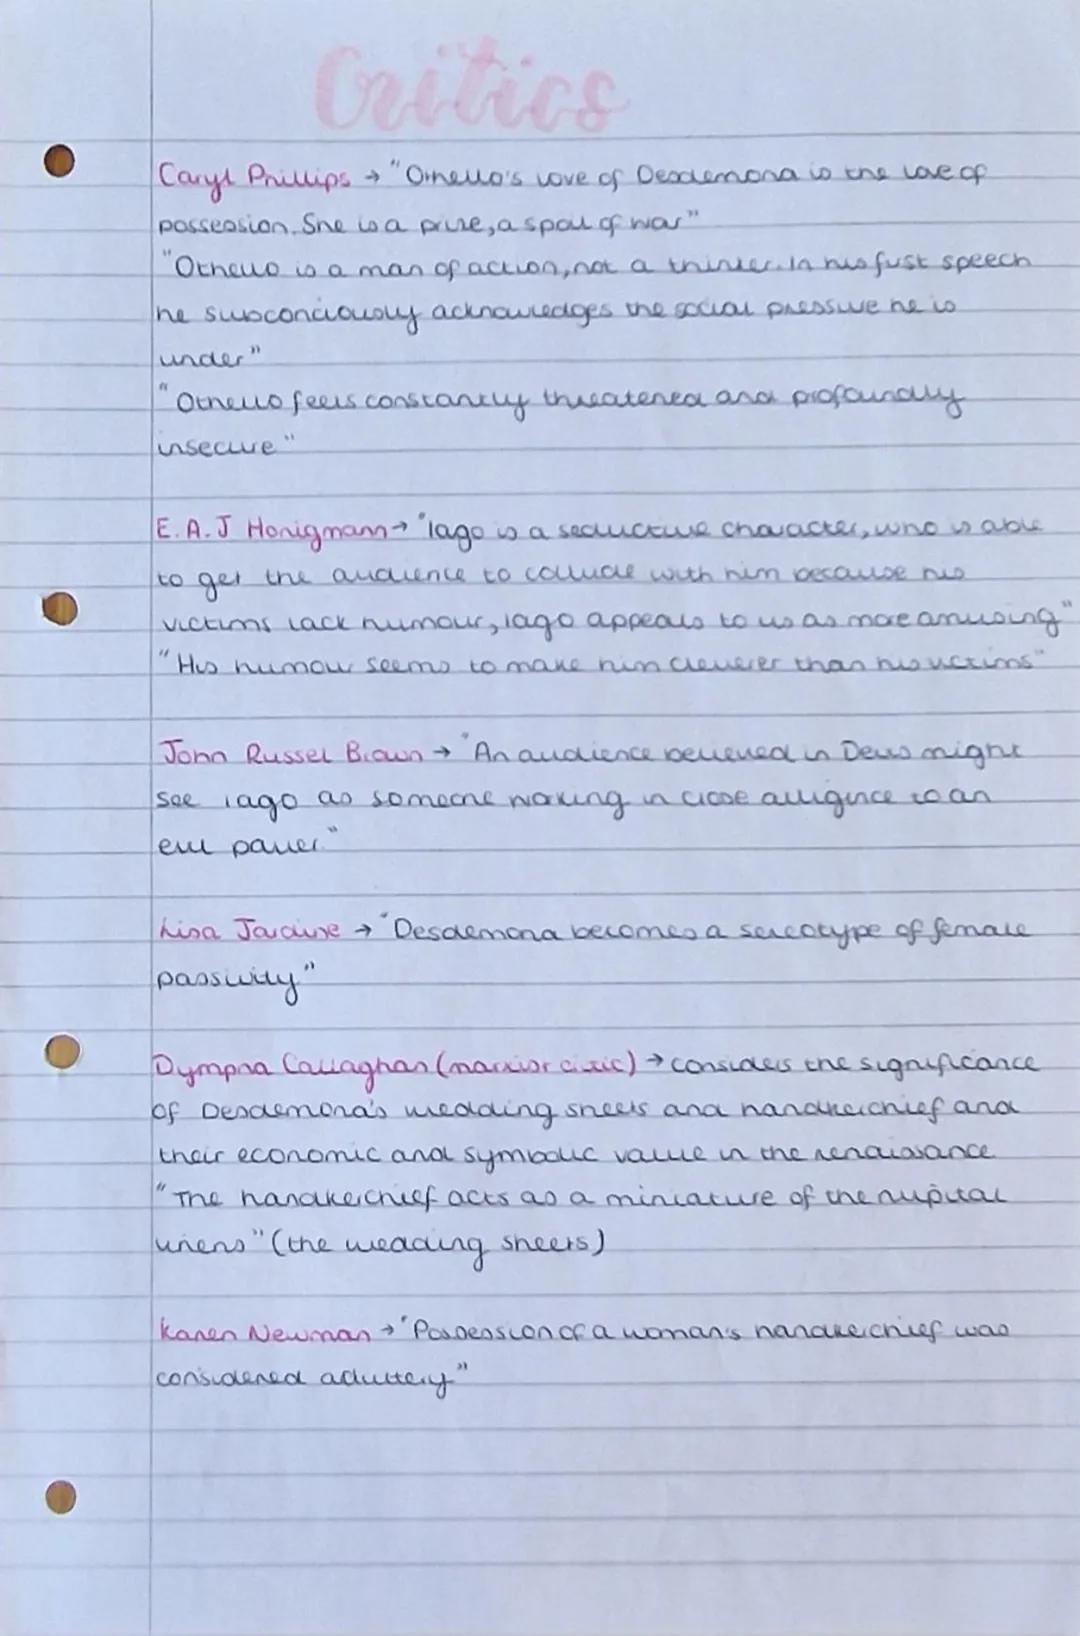 Critics
Caryl Phillips → "Othello's love of Desdemona is the love of
possession. She is a prize, a spoil of war"
"Othello is a man of action, not a thinker. In his first speech
he subconciously acknowledges the social pressure he is
under"
"Othello feels constantly threatened and profoundly
insecure"
E.A.J Honigmann → "Iago is a seductive character, who is able
to get the audience to collude with him because his
victims lack humour, iago appeals to us as more amusing"
"His humour seems to make him cleverer than his victims"
John Russel Brown → "An audience believed in Devils might
see iago as someone working in close alligence to an
evil power."
Lisa Jardine → "Desdemona becomes a sereotype of female
passivity"
Dympna Callaghan (marxist critic) → considers the significance
of Desdemona's wedding sheets and handkerchief and
their economic and symbolic value in the renaissance
"The handkerchief acts as a miniature of the nupital
linens" (the wedding sheets)
Karen Newman → "Possession of a woman's handkerchief was
considered adultery"